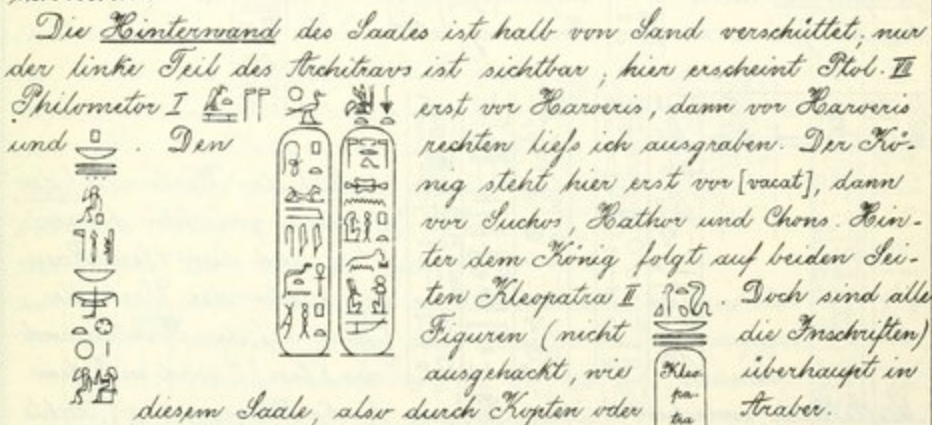 Die Hinterwand des Saales ist halb von Sand verschüttet; nur
der linke Teil des Architravs ist sichtbar, hier erscheint Ptol. VII
Philometor I erst vor Harveris, dann vor Harveris
und . Den rechten liefs ich ausgraben. Der Kö-
nig steht hier erst vor [vacat], dann
vor Suchos, Hathor und Chons. Hin-
ter dem König folgt auf beiden Sei-
ten Kleopatra II . Doch sind alle
Figuren (nicht die Inschriften)
ausgehackt, wie Kleo- überhaupt in
pa-
diesem Saale, also durch Kopten oder tra Araber.